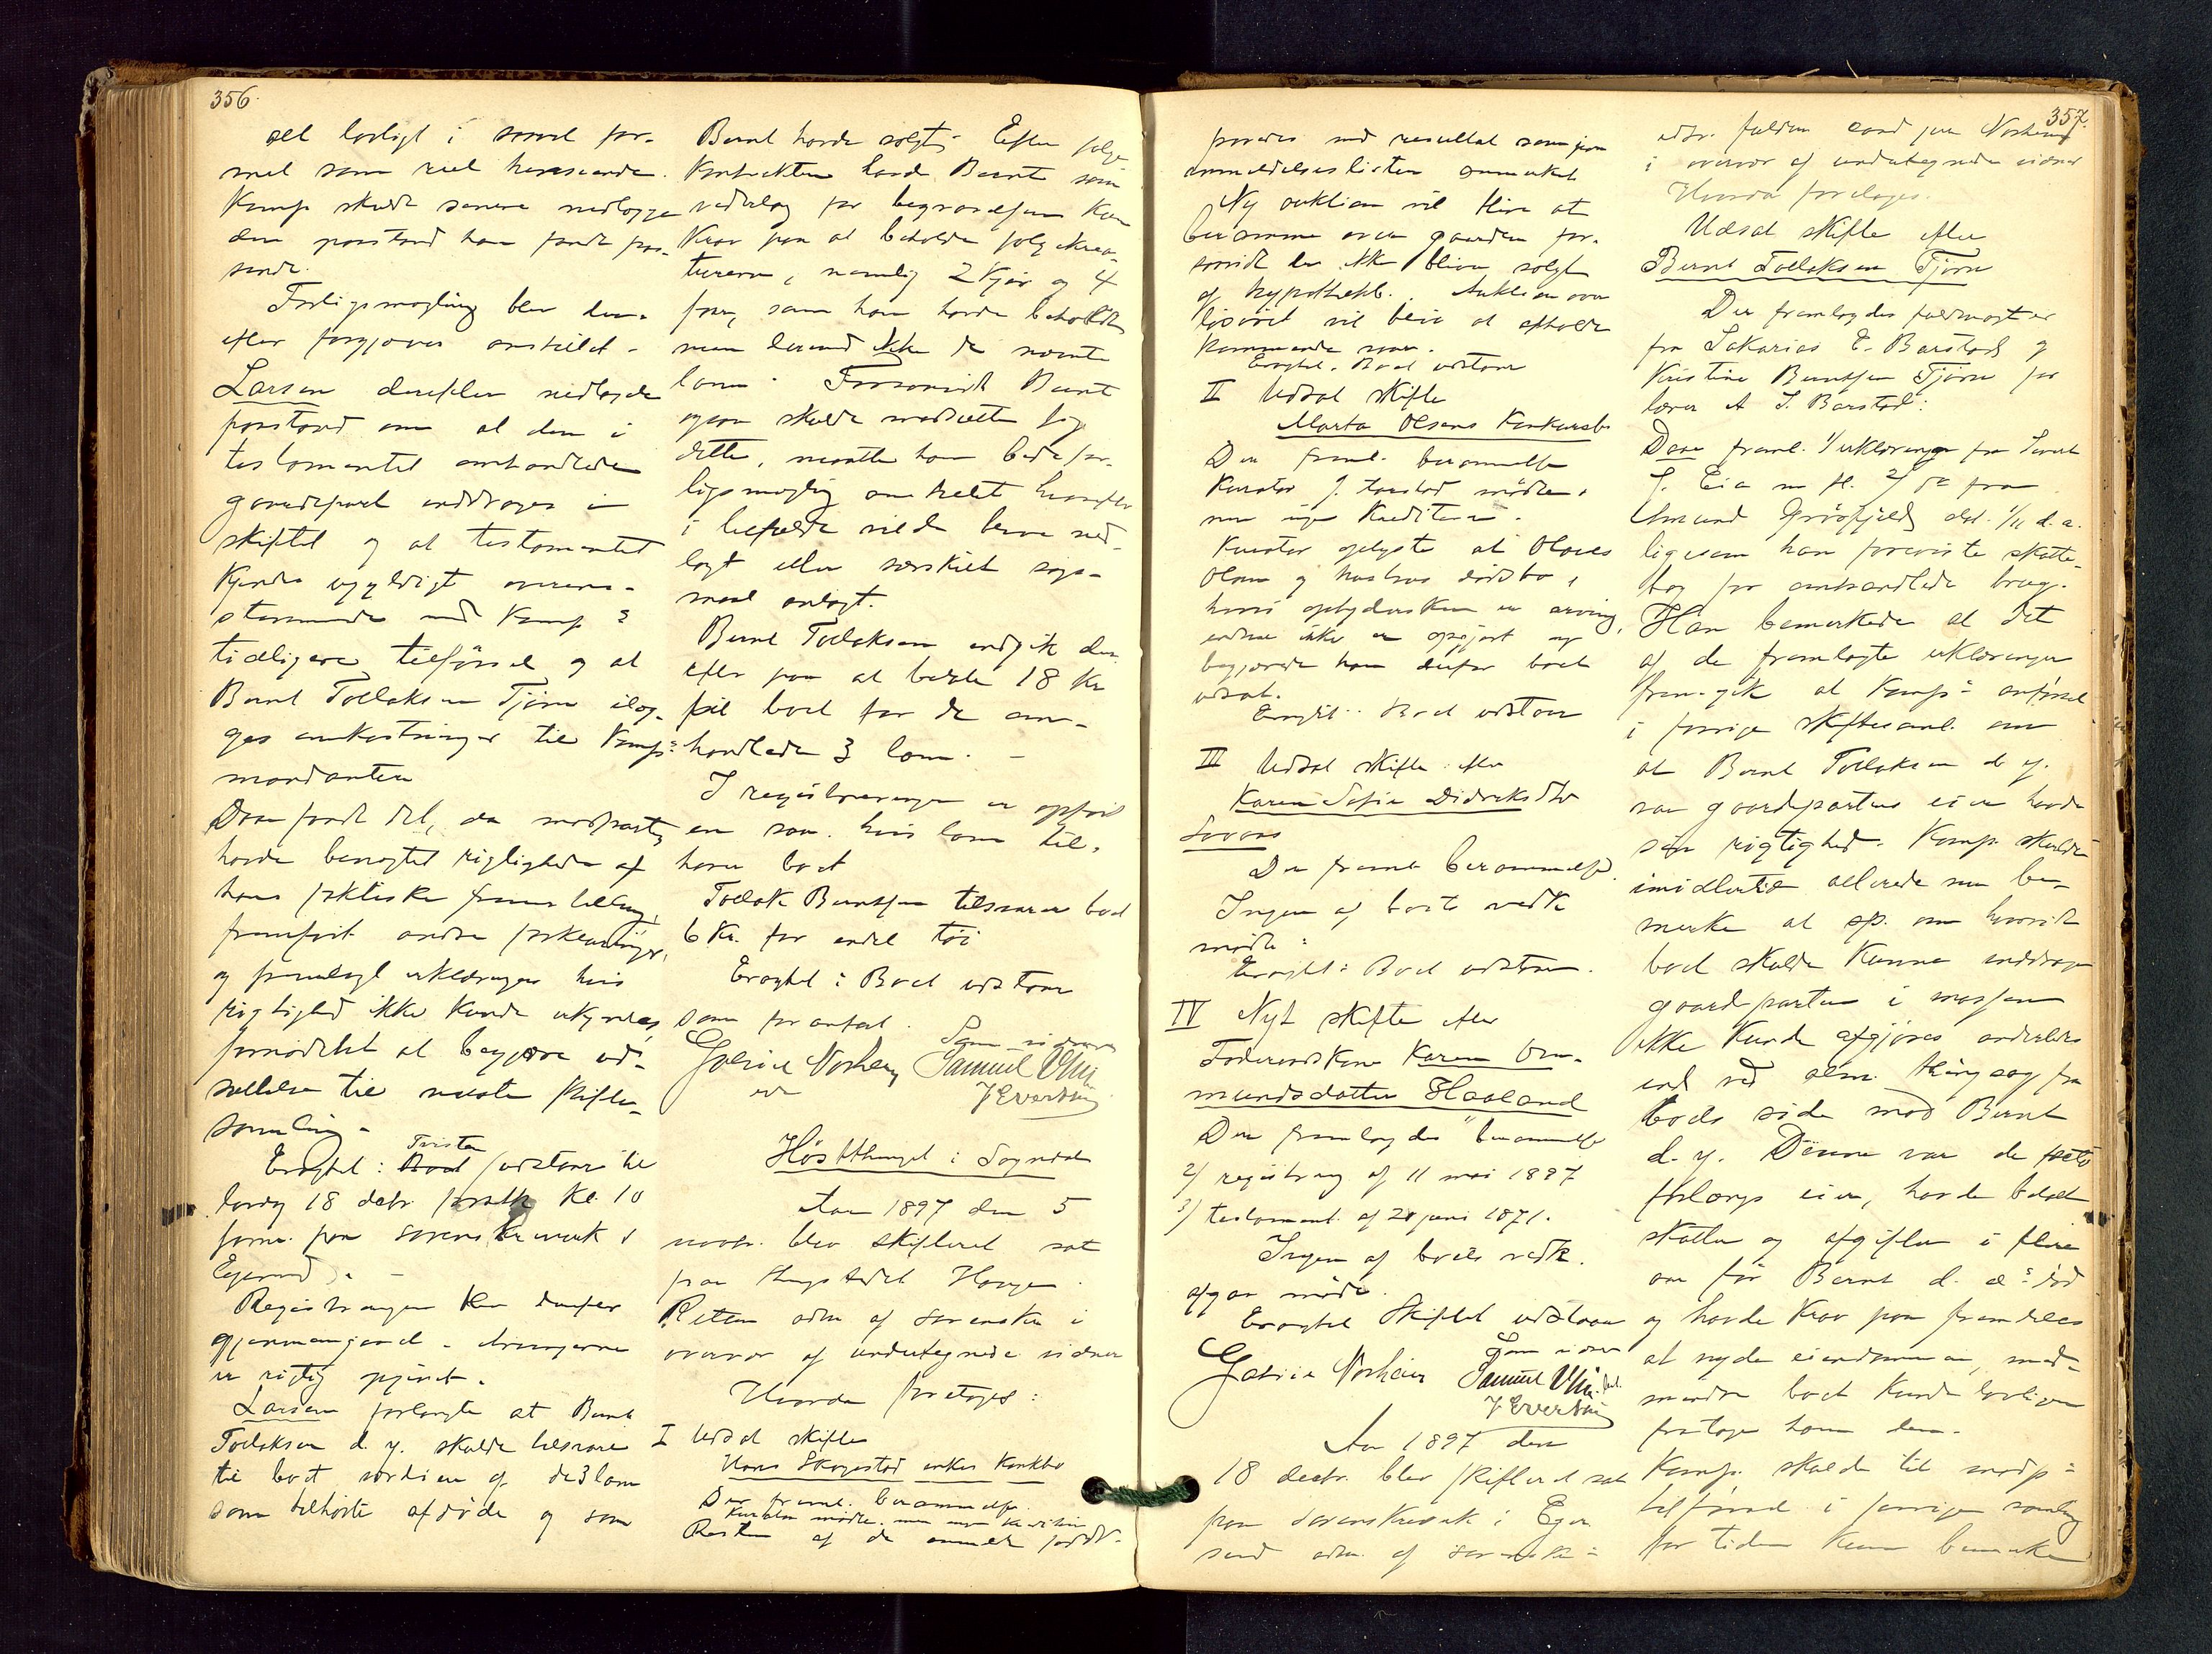 356.
alt lovligt i saavel for-
mel som reel henseende.
Kamp skulde senere nedlægge
den paastand han fandt pas-
sende.
Forligsmægling blev der-
efter forgjæves anstillet.
Larsen derefter nedlagde
paastand om at den i
testamentet omhandlede
gaardepart inddrages i
skiftet og at testamentet
kjendes ugyldigt overens-
stemmende med Kamps
tidligere tilførsel og at
Bernt Tollaksen Tjørn ilæg-
ges omkostninger til Kamps
mandanter
Daae fandt det, da modparten
havde benægtet rigtigheden af
hans faktiske fremstilling,
fremført andre forklaringer,
og fremlagt erklæringer hvis
rigtighed ikke kunde erkjendes,
fornødent at begjære ud-
sættelse til næste skifte-
samling.
Eragtet: Tvisten udstaar til
lørdag 18 decbr. førstk. kl. 10
form. paa sorenskrivereriet i
Egersund.
Registreringen blev derefter
gjennemgaaet. Arvingerne
er rigtig opført.
Larsen forlangte at Bernt
Tollaksen d. y. skulde tilsvare
til boet værdien af de 3 lam
som tilhørte afdøde og som
Bernt havde solgt. Efter følge
kontrakten havde Bernt som
vederlag for begravelsen kun
krav paa at beholde følgekrea-
turerne, nemlig 2 kjør og 4
faar, som han havde beholdt
men derimod ikke de nævnte
lam. Forsaavidt Bernt
ogsaa skulde modsætte sig
dette, maatte han bede for-
ligsmægling anstillet hvorefter
i tilfælde vilde blive ned-
lagt eller særskilt søgs-
maal anlagt.
Bernt Tollaksen indgik der-
efter paa at betale 18 Kr
til boet for de om-
handlede 3 lam.
I registreringen er opført
en sau hvis lam til-
hører boet
Tollak Berntsen tilsvarer boet
6 Kr. for endel tøi
Eragtet: Boet udstaar
som foranført.
Som vidner
Gabriel Norheim Samuel
J Evertsen
Høstthinget i Sogndal
Aar 1897 den 5
novbr. blev skifteret sat
paa thingstedet Haugen.
Retten adm af sorenskr. i
overvær af undertegnede vidner
Hvorda foretoges:
I Udsat skifte
Hans Skogestad enkes konkbo
Der freml. berammelse.
Kurator mødte, men ingen kreditor
Resten af de anmeldte fordr.
357.
prøvedes med resultat som paa
anmeldelseslisten anmerket
Ny auktion vil blive at
beramme over gaarden for-
saavidt den ikke bliver solgt
af hypothekb. Auktion over
løsøret vil blive at afholde
kommende vaar.
Eragtet. Boet udstaar
II Udsat skifte
Marta Olsens Konkursbo
Der freml. berammelse
Kurator J. Aarstad mødte,
men ingen kreditorer.
Kurator oplyste at Olaves
Olsen og hustrus dødsbo,
hvori opbydersken er arving,
endnu ikke er opgjort og
begjærede han derfor boet
udsat.
Eragtet: Boet udstaar
III Udsat skifte efter
Karen Sofie Didriksdtr
Der freml. berammelse.
Ingen af boets vedk.
mødte:
Eragtet: Boet udstaar.
IV Nyt skifte efter
Føderaadskone Karen Om-
mundsdatter Haaland
Der fremlagdes 1) berammelse
2) registrering af 11 mai 1897
3) testament. af 20 juni 1871.
Ingen af boets vedk.
afgav møde.
Eragtet Skiftet udstaar
Som vidner
Gabriel Norheim Samuel
J Evertsen
Aar 1897 den
18 decbr. blev skifteret sat
paa sorenskriveriet i Eger-
sund adm. af sorenskr.
edsv. fuldm. cand jur Norheim
i overvær af undertegnede vidner
Hvorda foretoges.
Udsat skifte efter
Bernt Tollaksen Tjørn
Der fremlagdes fuldmagter
fra Sakarias E. Barstad og
Kristine Berntsen Tjørn for
lærer A J. Barstad:
Daae freml. 1) erklæringer fra Sivert
J. Eia m fl. 2) do fra
Amund Grøsfjeld dat. 1/11 d. a.
ligesom han foreviste skatte-
bog for omhandlede brug.
Han bemerkede at det
af de fremlagte erklæringer
fremgik at Kamps anførsel
i forrige skiftesaml. om
at Bernt Tollaksen d. y.
var gaardpartens eier havde
sin rigtighed. Kamp skulde
imidlertid allerede nu be-
merke at sp. om hvorvidt
boet skulde kunne inddrage
gaardparten i massen
ikke kunde afgjøres anderledes
end ved alm. thingsag fra
boets side mod Bernt
d. y. Denne var de facto
forlængst eier, havde betalt
skatter og afgifter i flere
aar før Bernt d. æ's død
og havde krav paa fremdeles
at nyde eiendommen, med-
mindre boet kunde lovligen
fratage ham den.
Kamp skulde til modp's
tilførsel i forrige samling
for tiden kun bemerke